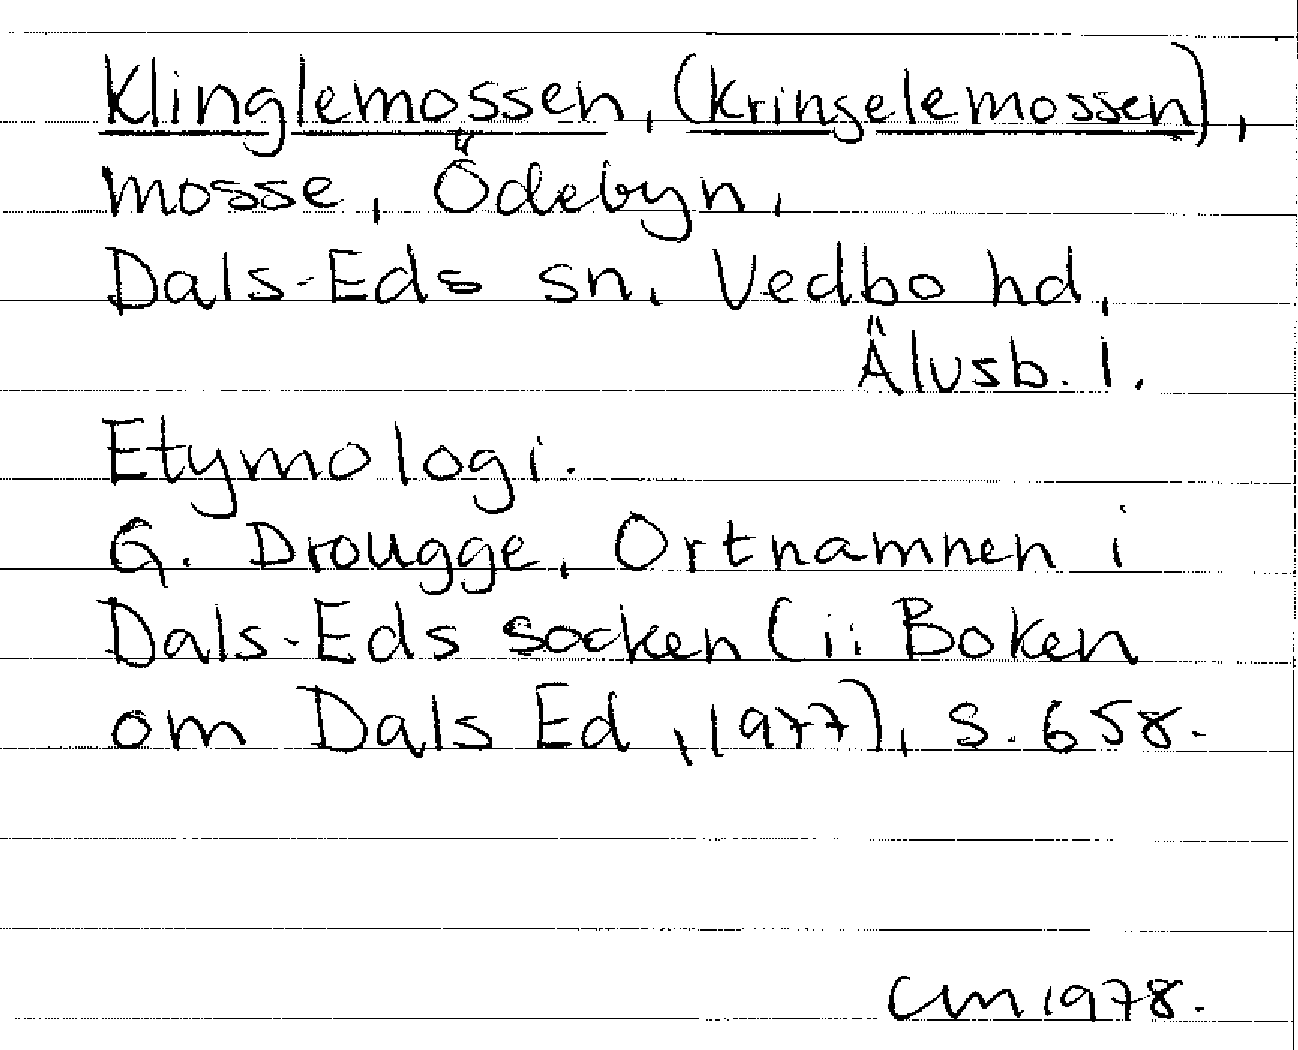 Klinglemossen, (Kringelemossen),
mosse, Ödebyn,
Dals-Eds sn, Vedbo hd,
Älvsb. l.
Etymologi.
G. Drougge, Ortnamnen i
Dals-Eds socken (i: Boken
om Dals Ed, 1977), s. 658.
CM 1978.